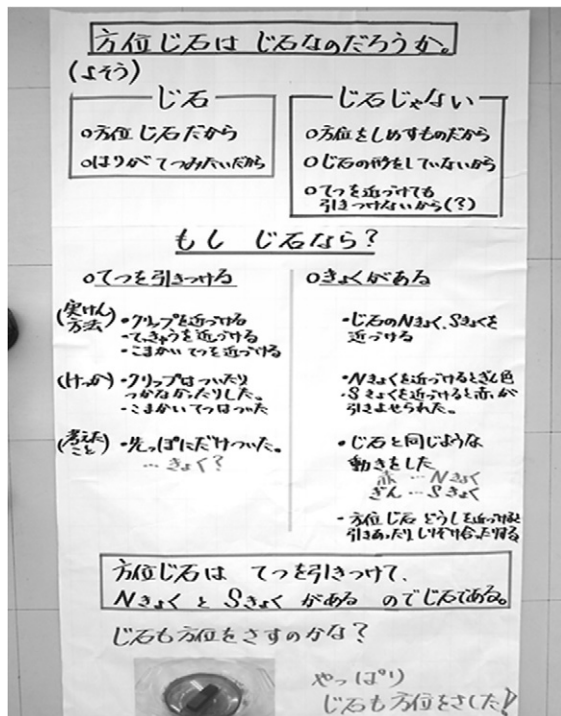 方位じ石は じ石なのだろうか。
(よそう)
じ石
○方位じ石だから
○はりが てつみたいだから
じ石じゃない
○方位をしめすものだから
○じ石の形をしていないから
○てつを近づけても
引きつけないから(?)
もし じ石なら?
○てつを引きつける
(実けん方法)
・クリップを近づける
・てっきゅうを近づける
・こまかいてつを近づける
(けっか)
・クリップはついたり
つかなかったりした。
・こまかいてつはついた
(考えたこと)
・先っぽにだけついた。
… きょく?
○きょくがある
・じ石のNきょく、Sきょくを
近づける
・Nきょくを近づけるとぎん色
・Sきょくを近づけると赤が
引きよせられた。
・じ石と同じような
動きをした
赤 … Nきょく
ぎん … Sきょく
・方位じ石どうしを近づけると
引きあったり、しりぞけ合ったりする
方位じ石は てつを引きつけて、
Nきょく と Sきょく がある のでじ石である。
じ石も方位をさすのかな?
やっぱり
じ石も方位をさした!